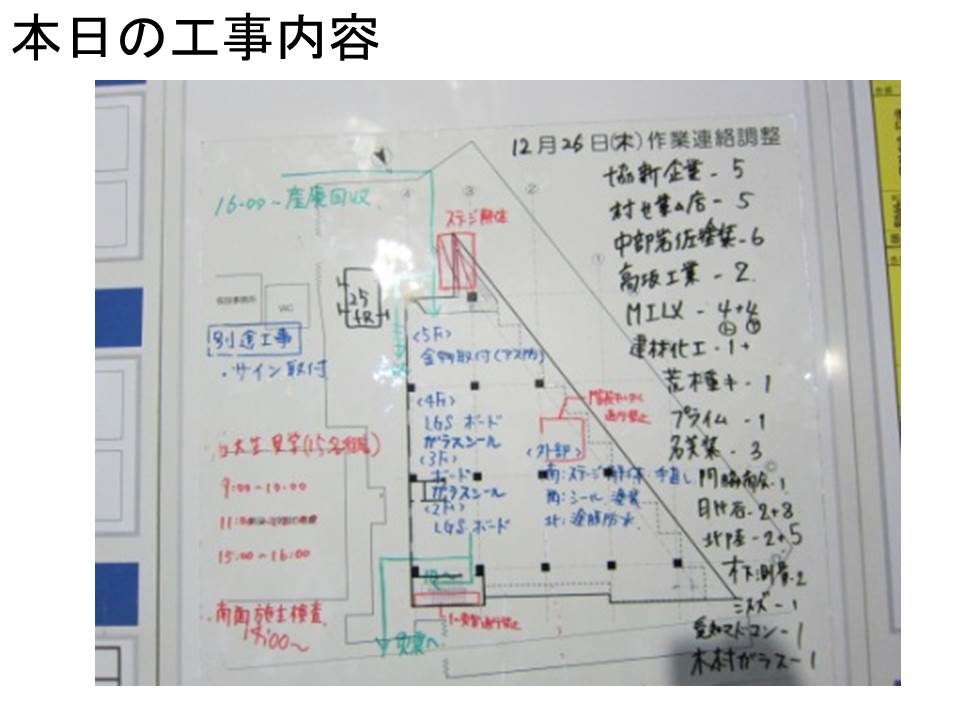 本日の工事内容
12月26日(木)作業連絡調整
協新企業 - 5
16:00~産廃回収
④
③
②
ステージ解体
- 5
中部岩佐塗装 - 6
①
高坂工業 - 2
25
tR
MILX - 4+4
WC
別途工事
<5F>
建材化工 - 1+
・サイン取付
金物取付(アスカ)
- 1
<4F>
通行禁止
LGS ボード
プライム - 1
ガラスシール
<外部>
- 3
大生見学(15名程度)
<3F>
ボード
南:ステージ解体 手直し
9:00~10:00
ガラスシール
西:シール 塗装
- 2+8
11:
<2F>
北:塗膜防水
- 2+5
LGS ボード
15:00~16:00
木下測量 - 2
南面施主検査
通行禁止
ニスズ - 1
愛知マドコン - 1
木村ガラス - 1